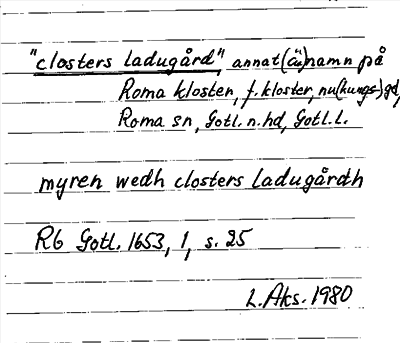 "closters ladugård", annat (än) namn på
Roma kloster, f. kloster, nu (kungs)gd,
Roma sn, Gotl. n. hd, Gotl. l.
myren wedh closters ladugårdh
Rb Gotl. 1653, 1, s. 25
L. Aks. 1980